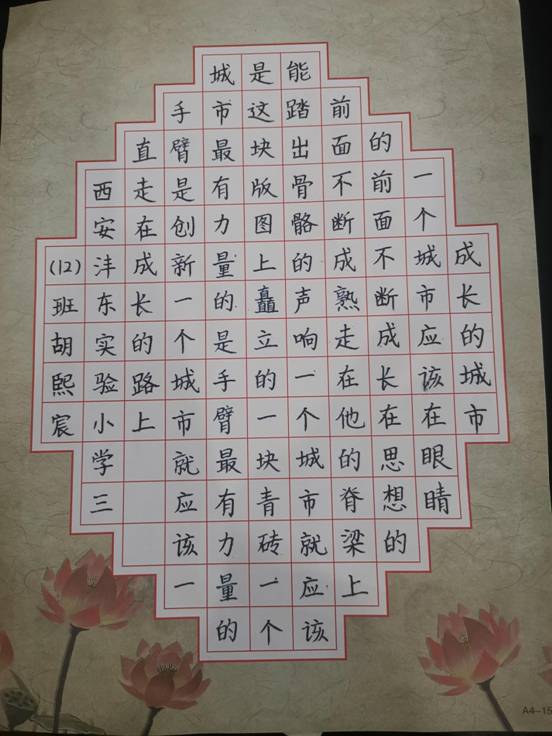 成长的城市
一个城市应该在眼睛
的前面不断成长在思想的
前面不断成熟走在他的脊梁上
能踏出骨骼的声响一个城市就应该
是这块版图上矗立的一块青砖一个
城市最有力量的是手臂最有力量的
手臂是创新一个城市就应该一
直走在成长的路上
西安沣东实验小学三
(12)班胡熙宸
A4-15